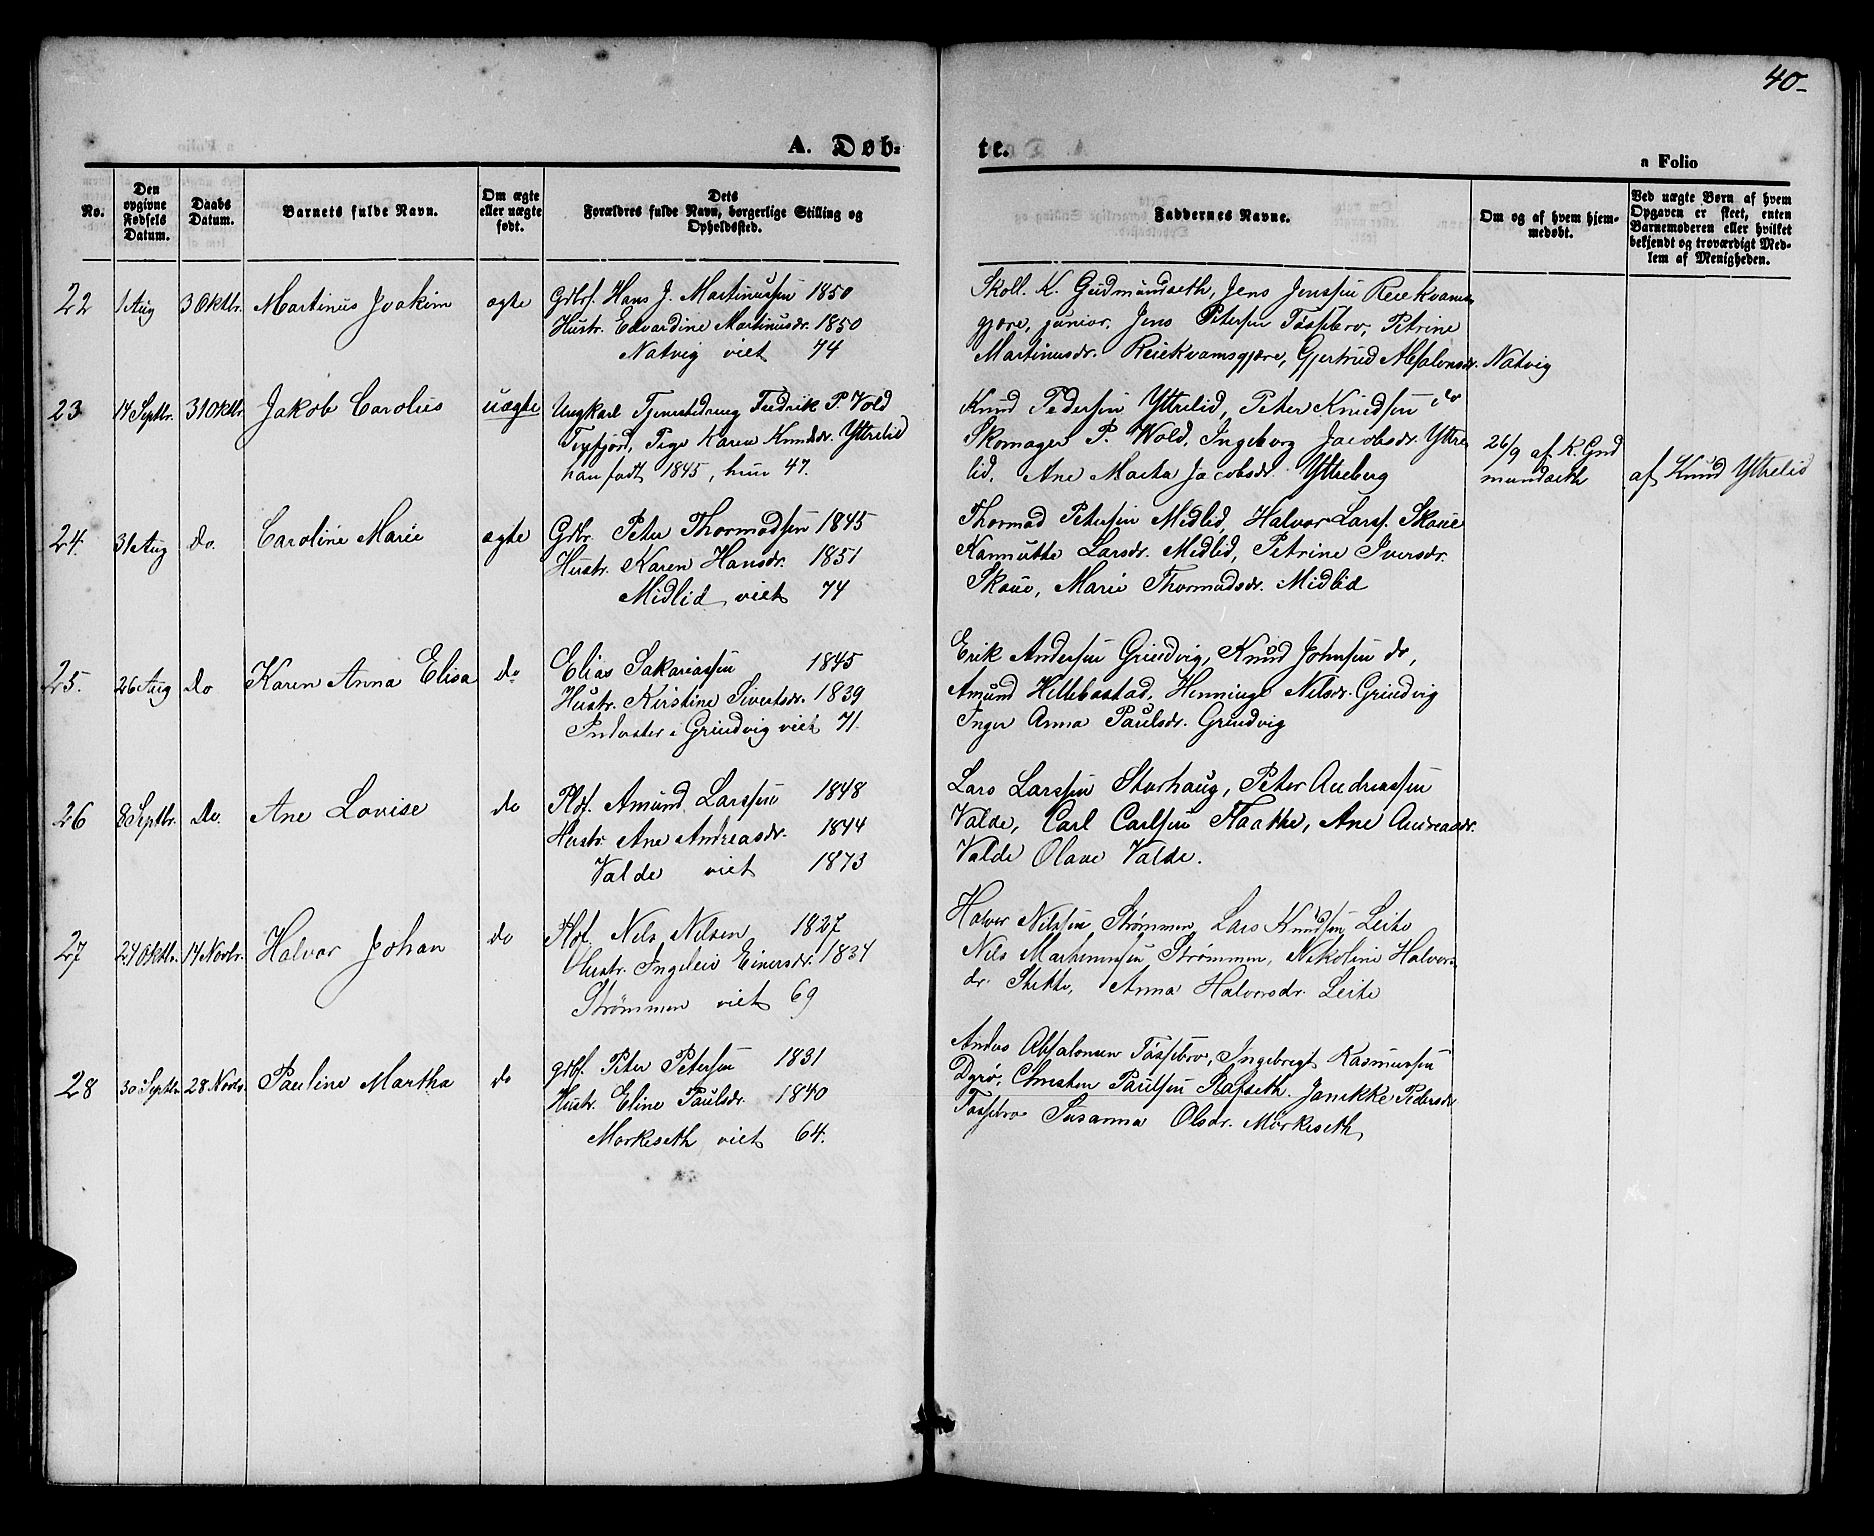 40-
A. Døb=
te.
a Folio
No.
Den opgivne Fødsels Datum.
Daabs Datum.
Barnets fulde Navn.
Om ægte eller uægte født.
Dets Forældres fulde Navn, borgerlige Stilling og Opholdssted.
Faddernes Navne.
Om og af hvem hjemmedøbt.
Ved uægte Børn af hvem Opgaven er skeet, enten Barnemoderen eller hvilket bekjendt og troværdigt Medlem af Menigheden.
22 1 Aug 3 Oktbr. Martinus Joakim ægte Grbrf. Hans J. Martinussen 1850
Hustr. Edvardine Martinusdr. 1850
Natvig viet 74
Skoll. K. Gudmundseth, Jens Jenssen Reiekvams
gjære, junior. Jens Petersen Tøssebro, Petrine
Martinusdr. Reiekvamsgjære, Gjertrud Absalonsdr. Natvig
23 14 Septbr. 31 Oktbr. Jakob Carolus uægte Ungkarl Tjenestedreng Fredrik P. Vold
Pige Karen Knudsdr. Yttrelid
han født 1845, hun 47.
Knud Pedersen Yttrelid, Peter Knudsen do
Skomager P. Wold, Ingeborg Jacobsdr. Yttre
lid, Ane Marta Jacobsdr. Yttreberg
26/9 af K. Gud
mundseth
af Knud Yttrelid
24. 31 Aug do. Caroline Marie ægte Grbr. Peter Thormodsen 1845
Hustr. Karen Hansdr. 1851
Midlid viet 74
Thormod Petersen Midlid, Halvor Larss. Skaue
Larsdr. Midlid, Petrine Iversdr.
Skaue, Marie Thormodsdr. Midlid
25. 26 Aug do Karen Anna Elisa do Elias Sakariassen 1845
Hustr. Kirstine Sivertsdr. 1839
Inderster i Grindvig viet 71.
Erik Andersen Grindvig, Knud Johnsen do,
Amund Hellebostad, Henninge Nilsdr. Grindvig
Inger Anna Paulsdr. Grindvig
26 8 Septbr. do. Ane Lovise do Pldf. Amund Larssen 1848
Hustr. Ane Andreasdr. 1844
Valde viet 1873
Lars Larssen Storhaug, Peter Andreassen
Valde, Carl Carlsen Flaatke, Ane Andreasdr.
Valde Olave Valde.
27 24 Oktbr. 14 Novbr. Halvor Johan do Pldf. Nils Nilsen 1827
Hustr. Ingeleiv Einersdr. 1834
Strømmen viet 69
Halvor Nilssen Strømmen, Lars Knudsen Leite
Nils Strømmen, Nikoline Halvors
dr. Anna Halvorsdr. Leite
28 30 Septbr. 28 Novbr. Pauline Martha do grbf. Peter Petersen 1831
Hustr. Eline Paulsdr. 1840
Morkeseth viet 64.
Anders Absalonsen Tøssebro, Ingebregt Rasmussen
Dyrø, Christen Paulsen Rafseth. Janikke Pedersdr
Tøssebro Susanna Olsdr. Mørkeseth